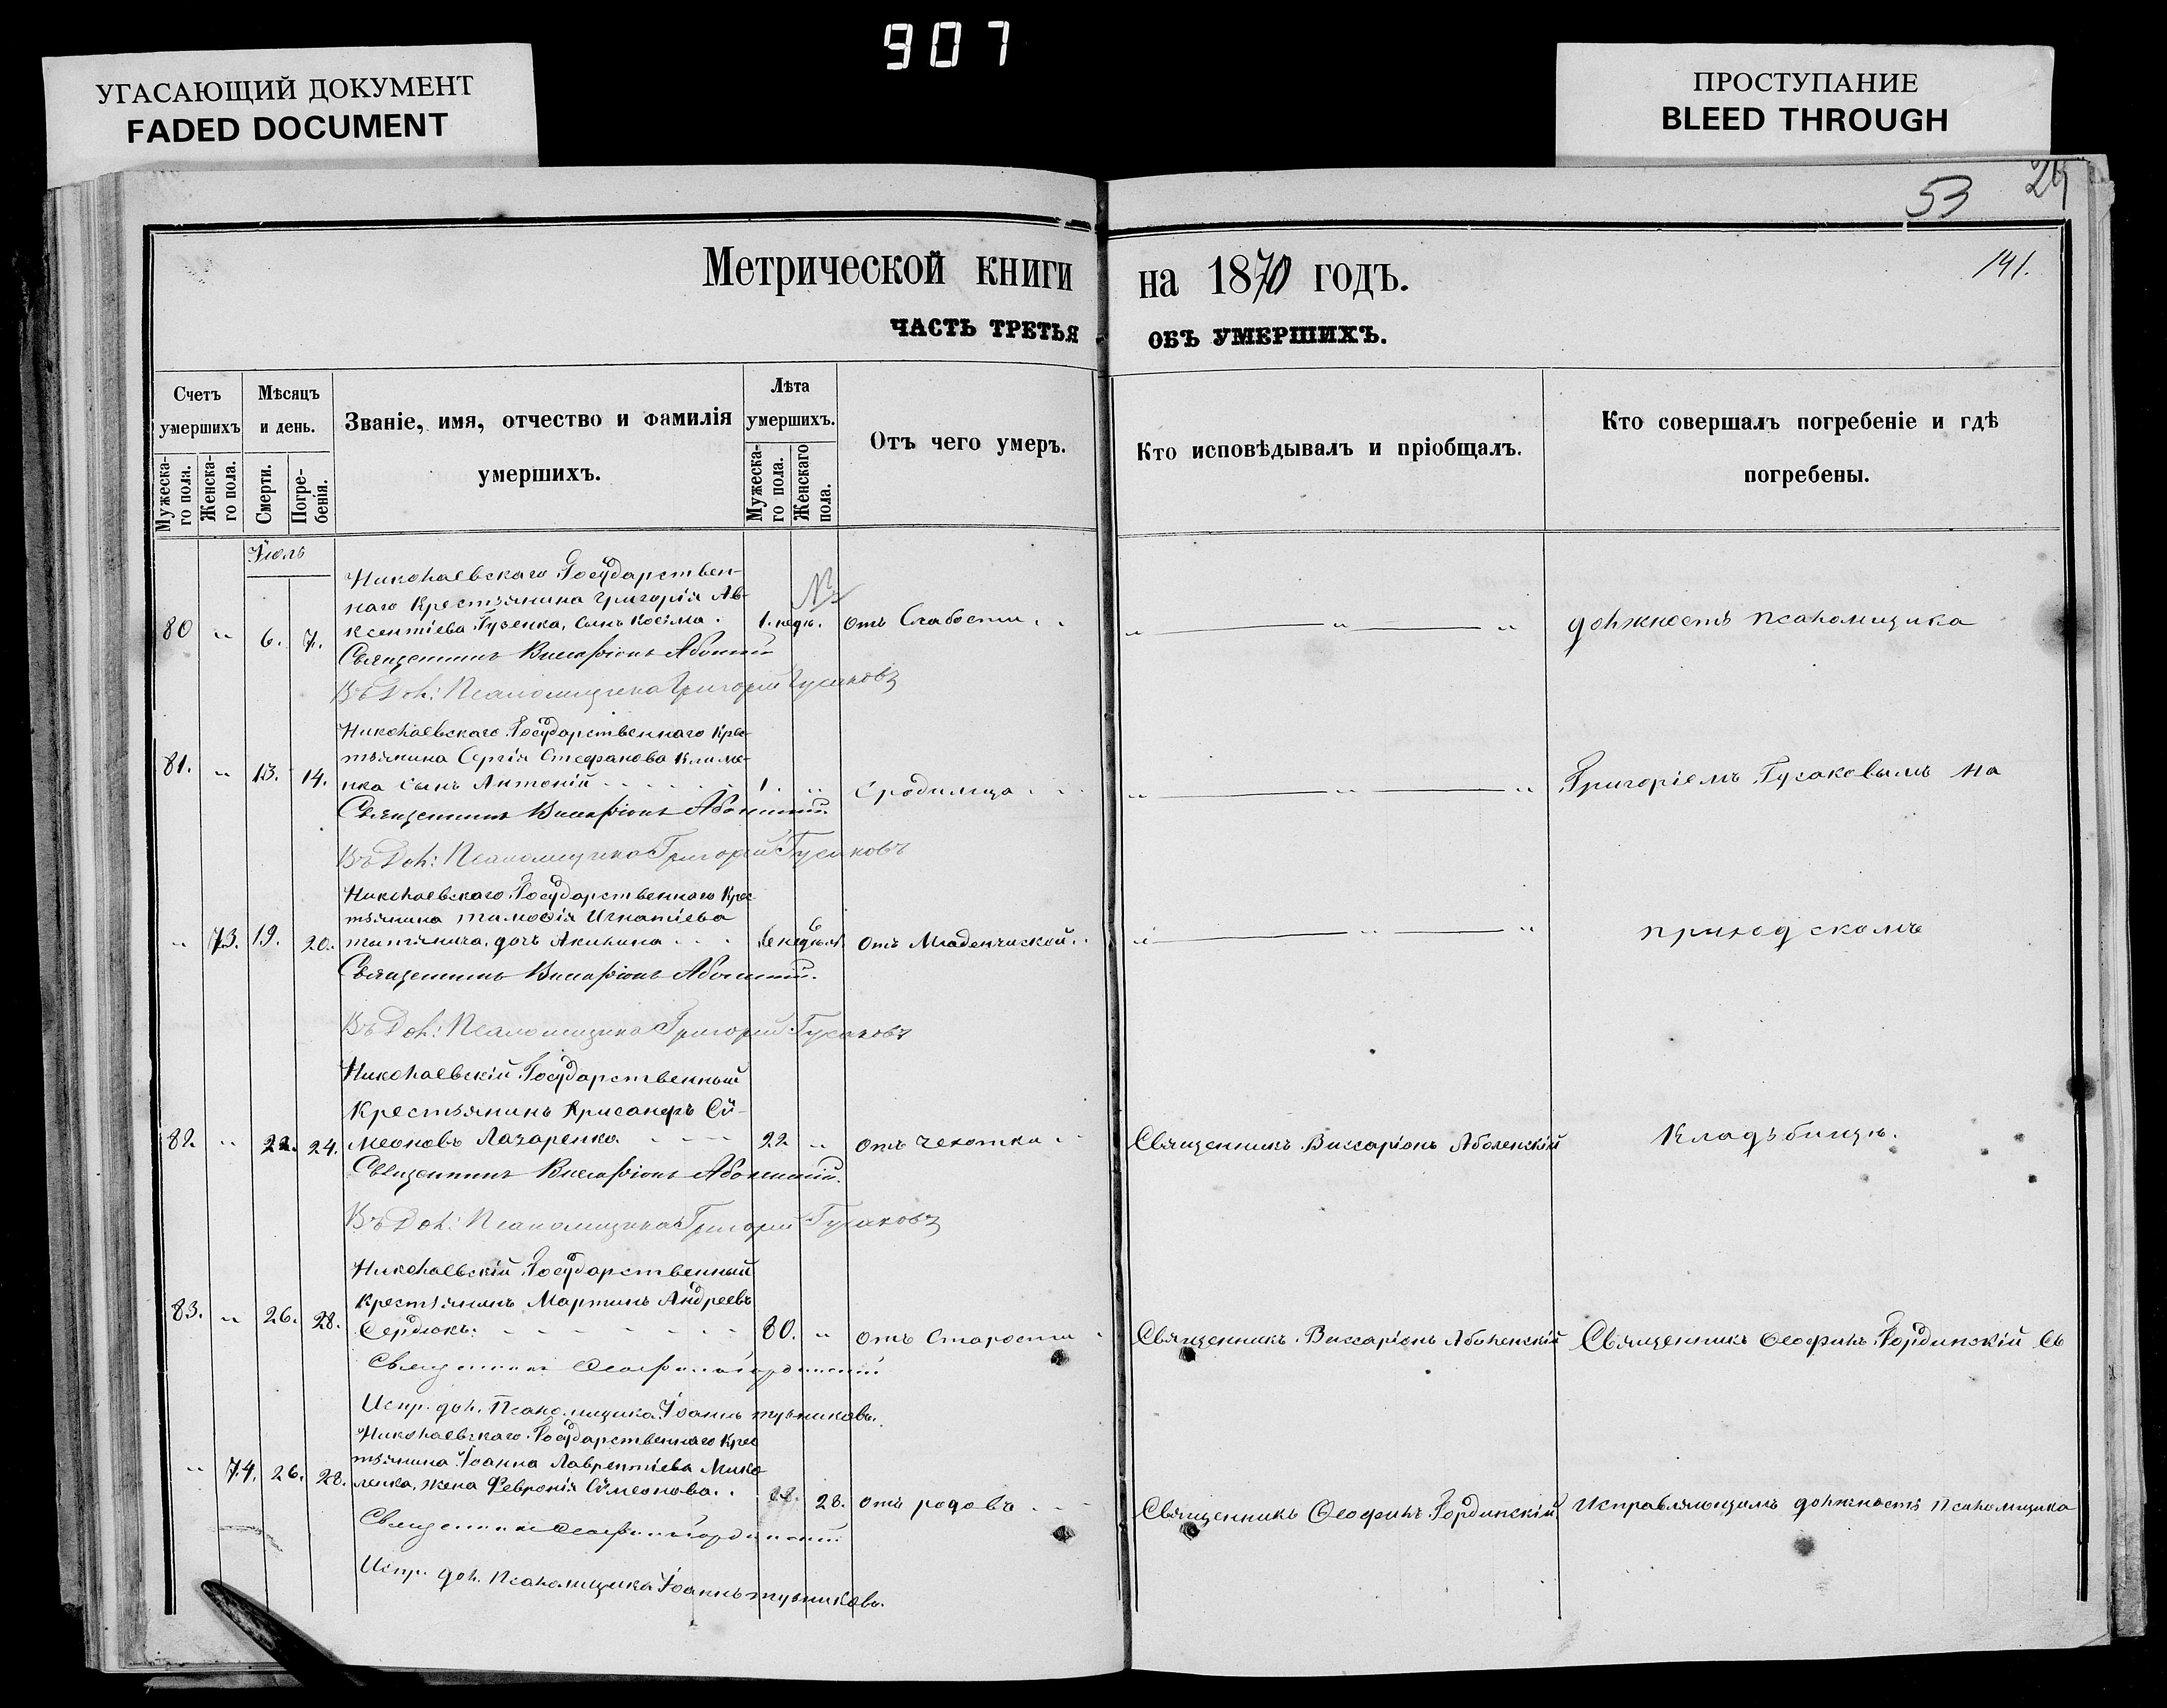 907
УГАСАЮЩИЙ ДОКУМЕНТ
FADED DOCUMENT
ПРОСТУПАНИЕ
BLEED THROUGH
53
141.
Метрической книги на 1870 годъ.
ЧАСТЬ ТРЕТЬЯ ОБЪ УМЕРШИХЪ.
Счетъ умершихъ
Мужеска-го пола.
Женска-го пола.
Мѣсяцъ и день.
Смерти.
Погре-бенія.
Званіе, имя, отчество и фамилія умершихъ.
Лѣта умершихъ.
Мужеска-го пола.
Женскаго пола.
Отъ чего умеръ.
Кто исповѣдывалъ и пріобщалъ.
Кто совершалъ погребеніе и гдѣ погребены.
Іюль
Николаевскаго Государствен-
наго Крестьянина Григорія Ав-
80 „ 6. 7. ксентіева Гузенка, сынъ Косьма. 1. недѣ. отъ Слабости „ „ „ должность псаломщика
Священникъ Виссаріонъ Аболенскій
Въ Дол: Псаломщика Григорій Гусаковъ
Николаевскаго Государственнаго Крес-
тьянина Сергія Стефанова Климе-
81. „ 13. 14. нка сынъ Антоній 1. „ Сродимца „ „ „ Григоріемъ Гусаковымъ на
Священникъ Виссаріонъ Аболенскій
Въ Дол: Псаломщика Григорій Гусаковъ
Николаевскаго Государственнаго Крес-
тьянина Тимофія Игнатіева
„ 73. 19. 20. дочь Акилина 6 недѣль отъ Младенческой „ „ „ приходскомъ
Священникъ Виссаріонъ Аболенскій.
Въ Дол: Псаломщика Григорій Гусаковъ
Николаевскій Государственный
Крестьянинъ Хрисанфъ Си-
82. „ 22. 24. меоновъ Лазаренко 22 „ отъ чехотки Священникъ Виссаріонъ Аболенскій Кладъбищѣ.
Священникъ Виссаріонъ Аболенскій.
Въ Дол: Псаломщика Григорій Гусаковъ
Николаевскій Государственный
Крестьянинъ Мартинъ Андреевъ
83. „ 26. 28. Сердюкъ. 80. „ отъ Старости Священникъ Виссаріонъ Аболенскій Священникъ Ѳеофилъ Гординскій съ
Священникъ Ѳеофилъ Гординскій
Испр. дол. Псаломщика Іоаннъ
Николаевскаго Государственнаго Крес
тьянина Іоанна Лаврентіева Мико
„ 74. 26. 28. ленка, жена Февронія Симеонова. 28. отъ родовъ Священникъ Ѳеофилъ Гординскій Исправляющимъ должность Псаломщика
Священникъ Ѳеофилъ Гординскій
Испр. дол. Псаломщика Іоаннъ